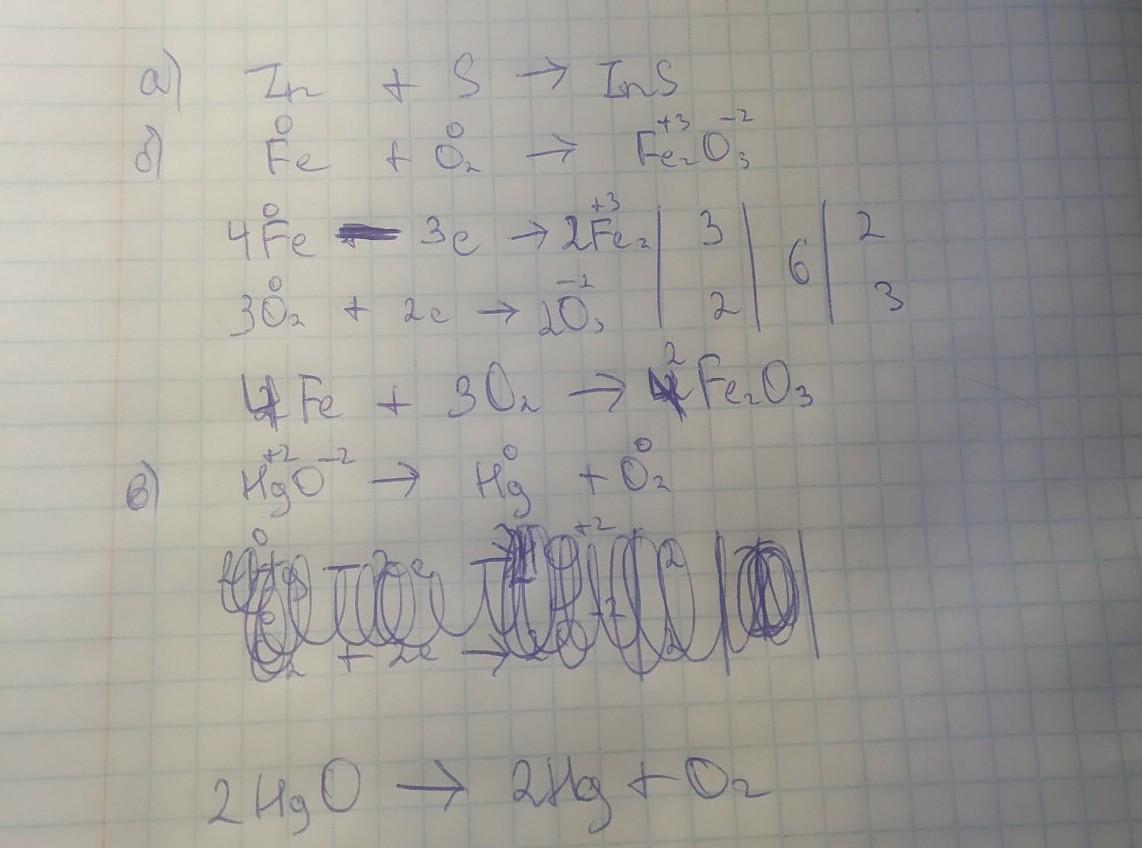 а) Zn + S → ZnS
б) Fe⁰ + O₂⁰ → Fe₂⁺³O₃⁻²
4Fe⁰ — 3e → 2Fe₂⁺³ | 3 | 6 | 2
3O₂⁰ + 2e → 2O₃⁻² | 2 | | 3
4Fe + 3O₂ → 2Fe₂O₃
в) Hg⁺²O⁻² → Hg⁰ + O₂⁰
2HgO → 2Hg + O₂